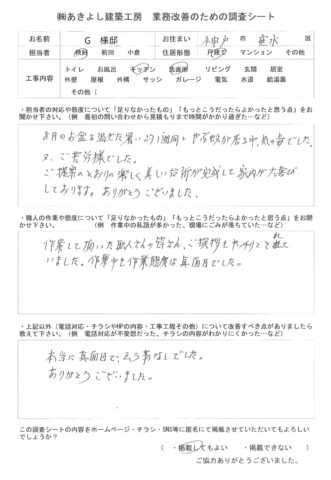 ㈱あきよし建築工房 業務改善のための調査シート
お名前 G 様邸 お住まい 神戸 市 垂水
担当者 秋好 前田 小倉 住居形態 戸建て マンション その他
工事内容 トイレ お風呂 キッチン 洗面所 リビング 玄関 居室
外壁 屋根 外構 サッシ ガレージ 電気 水道 給湯器
その他(
・担当者の対応や態度について「足りなかったもの」「もっとこうだったらよかったと思う点」をお
聞かせ下さい。(例 最初の問い合わせから見積もりまで時間がかかり過ぎた…など)
8月のお盆を過ぎた暑い
又、ご苦労様でした。
ご提案のとおりの楽しく美しい台所が完成して家内が大喜び
しております。ありがとうございました。
・職人の作業や態度について「足りなかったもの」「もっとこうだったらよかったと思う点」をお
聞かせ下さい。(例 作業中の私語が多かった、現場にごみが落ちていた…など)
作業して頂いた職人さんの皆さん、ご挨拶もきっちりとされて
いました。作業中も作業態度は真面目でした。
・上記以外(電話対応・チラシやHPの内容・工事工程その他)について改善すべき点がありましたら
教えて下さい。(例 電話対応が不愛想だった、チラシの内容がわかりにくかった…など)
本当に真面目で、云う事なしでした。
ありがとうございました。
この調査シートの内容をホームページ・チラシ・SNS等に匿名にて掲載させていただいてもよろしい
でしょうか?
(・掲載してもよい ・掲載できない )
ご協力ありがとうございました。